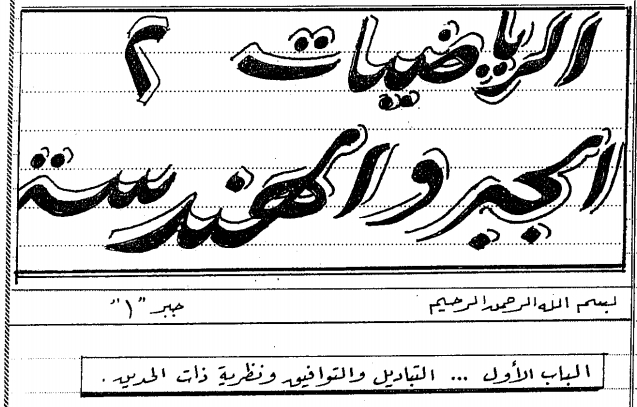 الرياضيات ٢
الجبر والهندسة
بسم الله الرحمن الرحيم جبر "١"
الباب الأول ... التباديل والتوافيق ونظرية ذات الحدين .